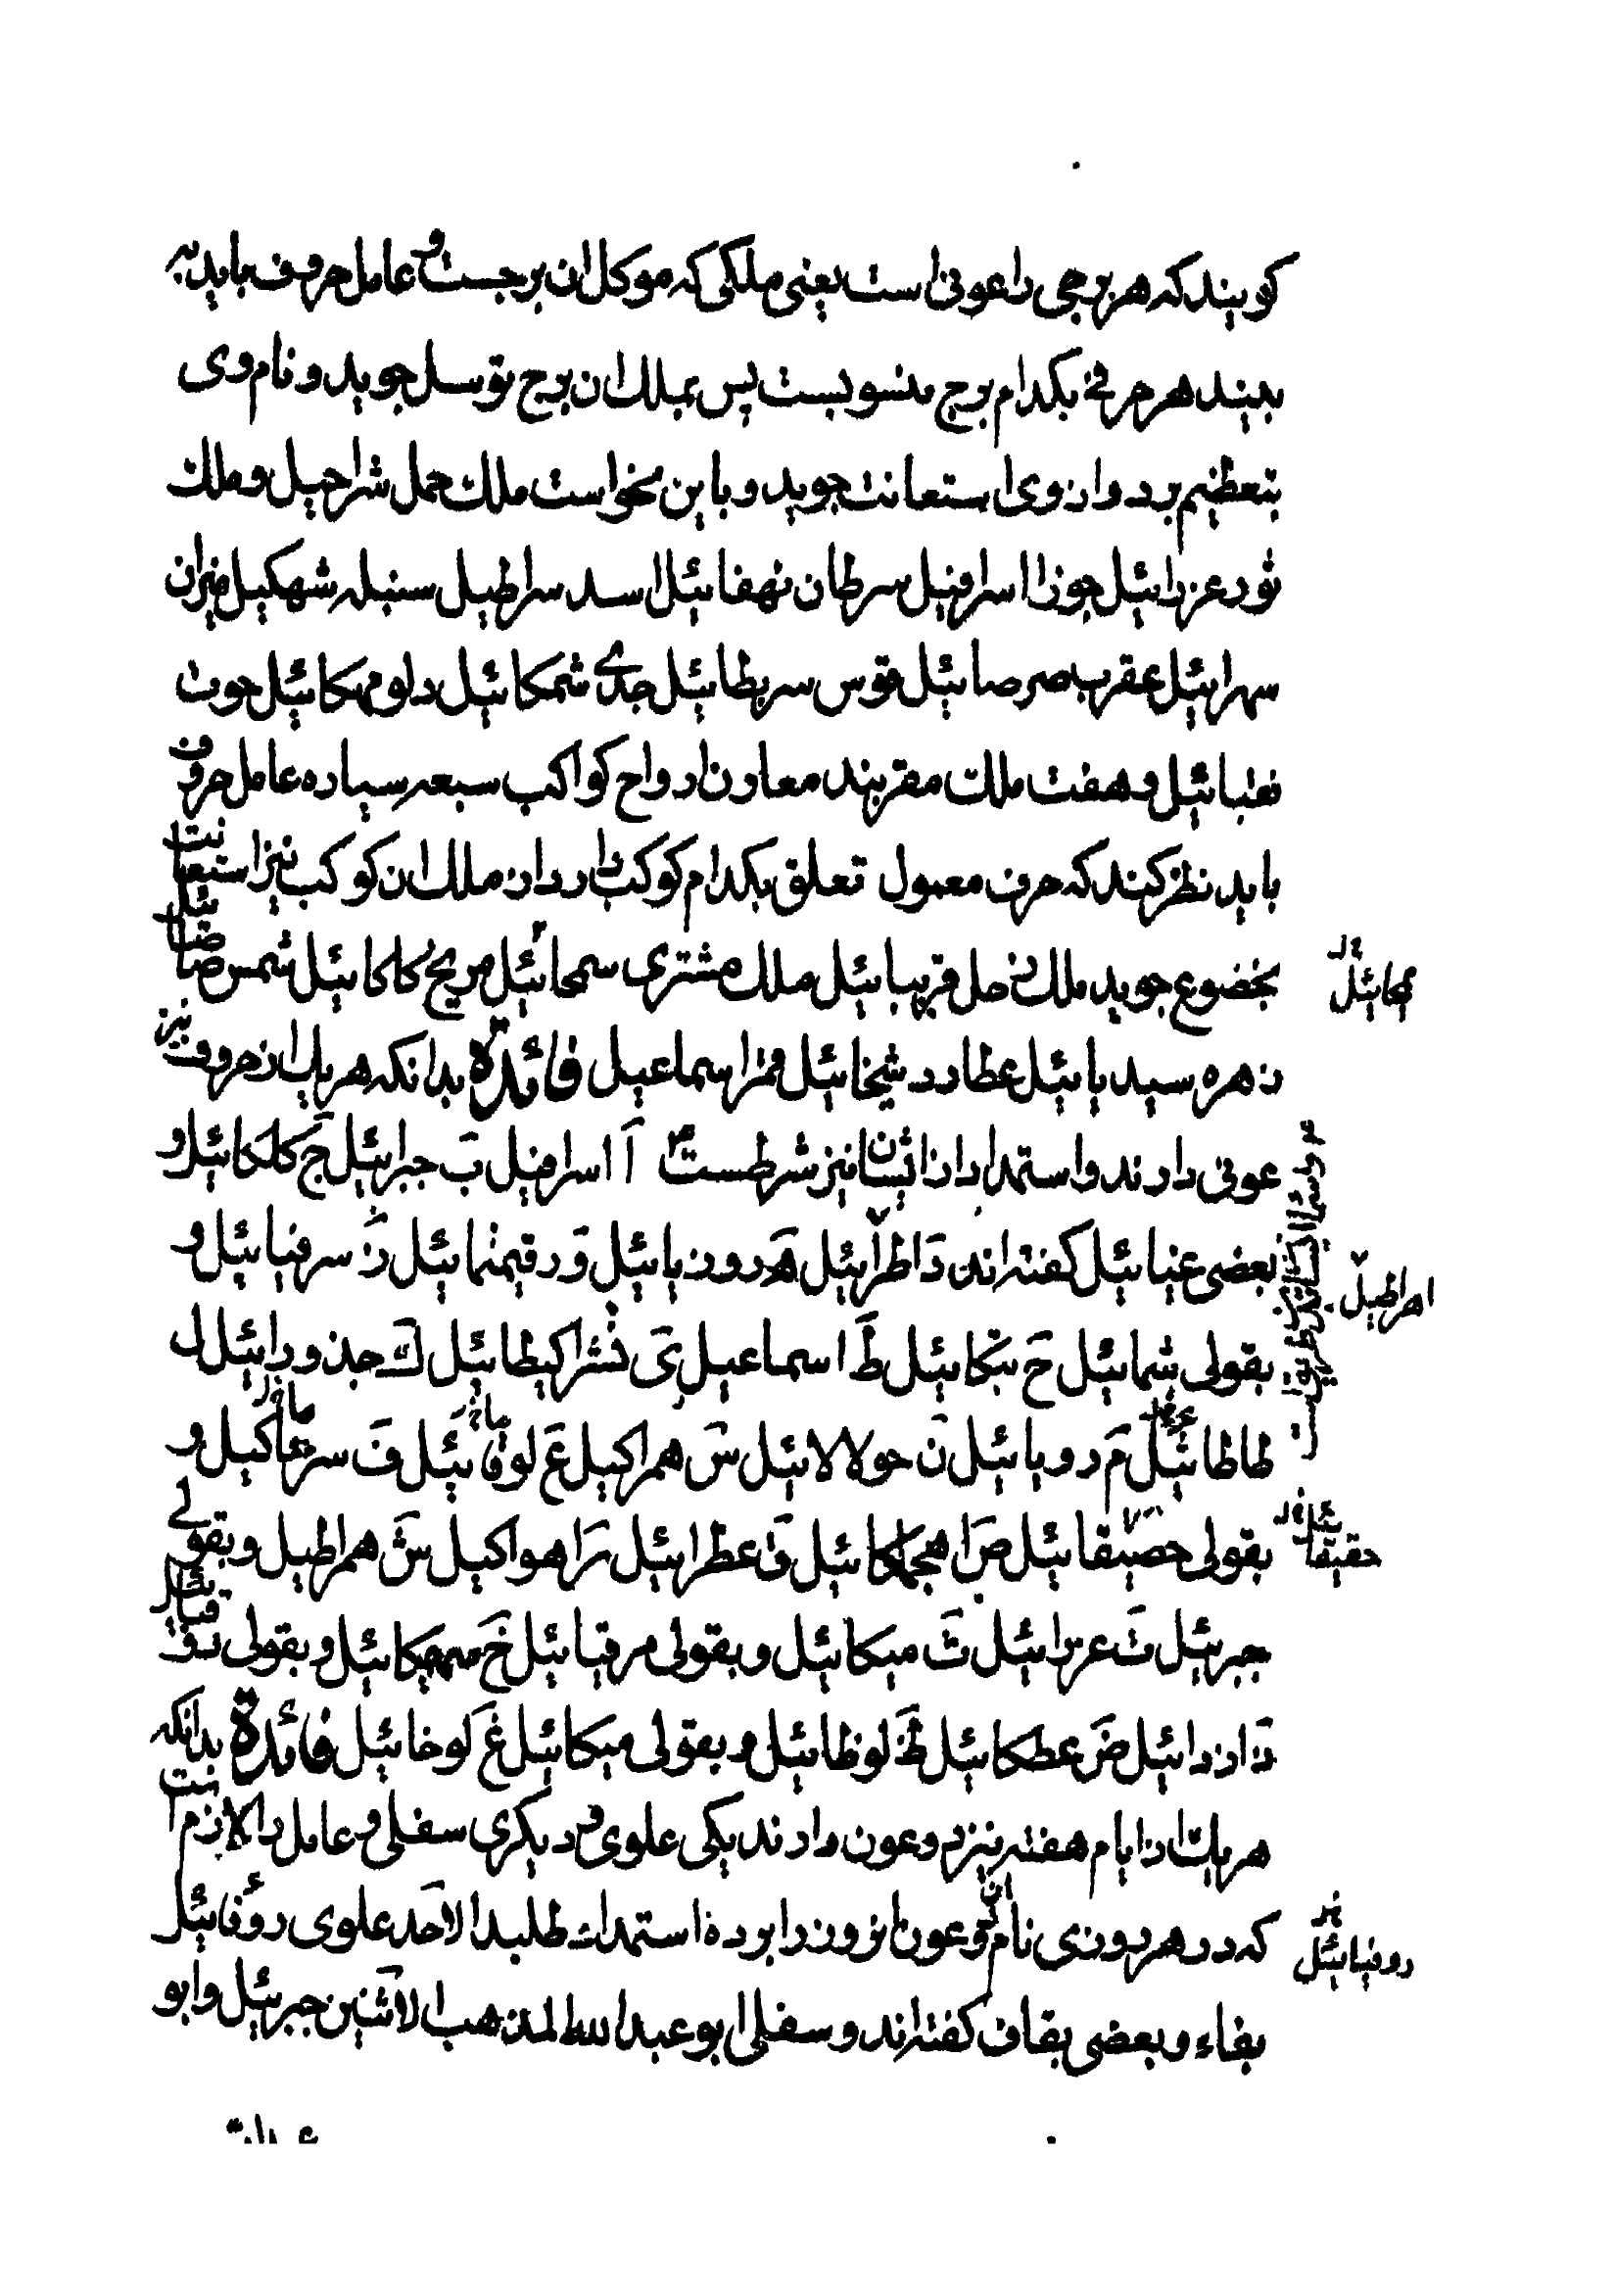 کویند که هر برجی را عونی است یعنی ملکی که موکل ان برجست و عامل حروف باید به
بیند هر حرفی بکدام برج منسوبست پس بملک ان برج توسل جوید و نام وی
بتعظیم برد و از وی استعانت جوید و باین نحو است ملک حمل شراحیل و ملک
ثور عزرائیل جوزا اسرافیل سرطان نهفائیل اسد سراطیل سنبله شهکیل میزان
سهرائیل عقرب صرصائیل قوس سریطائیل جدی شمکائیل دلو مهکائیل حوت
فقبائیل و هفت ملک مقربند معاون ارواح کواکب سبعه سیاره عامل حروف
باید نظر کند که حرف معمول تعلق بکدام کوکب دارد از ملک ان کوکب نیز استعانت
بخضوع جوید ملک زحل قریبائیل ملک مشتری سمحائیل مریخ کلکائیل شمس صاصائیل
زهره سیدیائیل عطارد شیخائیل قمر اسماعیل فائدة بدانکه هر یک از حروف نیز
عونی دارند و استمداد از ایشان نیز شرطست آ اسرافیل ب جبرائیل ج کلکائیل و
بعضی عنیائیل کفته اند د اطرائیل ه روزیائیل و رقیمثمائیل ز سرفیائیل و
بقولی شمائیل ح تنکائیل ط اسماعیل ی خثراکیطائیل ک جذورائیل ل
طاطائیل م رویائیل ن حولالائیل س همراکیل ع لومائیل ف سرحماکیل و
بقولی حصیقائیل ص اهجماکائیل ق عطرائیل ر اهواکیل ش همراطیل و بقولی
جبرئیل ت عزرائیل ث میکائیل و بقولی مرقیائیل خ مهیکائیل و بقولی
ذ ازرائیل ض عطکائیل ظ لوظائیل و بقولی میکائیل غ لوخائیل فائدة بدانکه
هر یک از ایام هفته نیز دو عون دارند یکی علوی و دیکری سفلی و عامل را لازم است
که در هر روزی نام دو عون ان روز را برده استمداد طلبد الاحد علوی روفائیل
بفاء و بعضی بقاف کفته اند و سفلی ابو عبدالله المذهب الاثنین جبرئیل و ابو
اهراطیل
حقیقائیل
روفیائیل